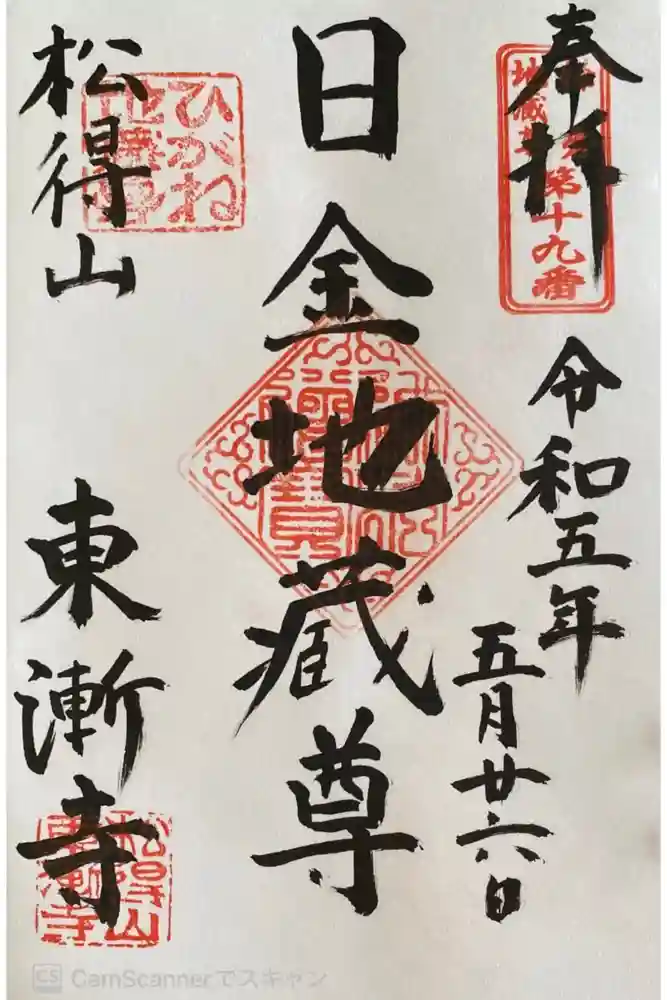 奉拝
第十九番
令和五年
五月廿六日
日金地蔵尊
ひがね
地蔵尊
松得山
東漸寺
松得山
東漸寺
CamScannerでスキャン